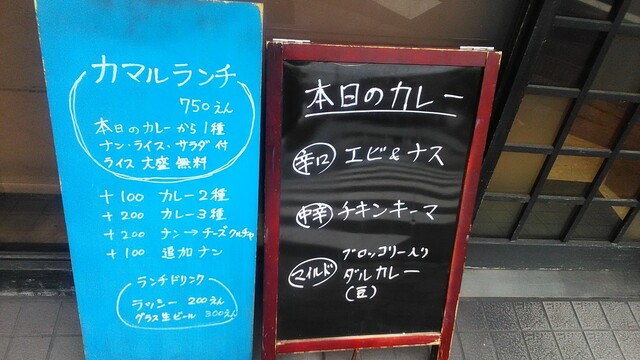 カマルランチ
750えん
本日のカレーから1種
ナン・ライス・サラダ付
ライス大盛無料
+100 カレー2種
+200 カレー3種
+200 ナン→チーズクルチャ
+100 追加ナン
ランチドリンク
ラッシー 200えん
グラス生ビール 300えん
本日のカレー
辛口 エビ&ナス
中辛 チキンキーマ
マイルド ブロッコリー入り
ダルカレー
(豆)